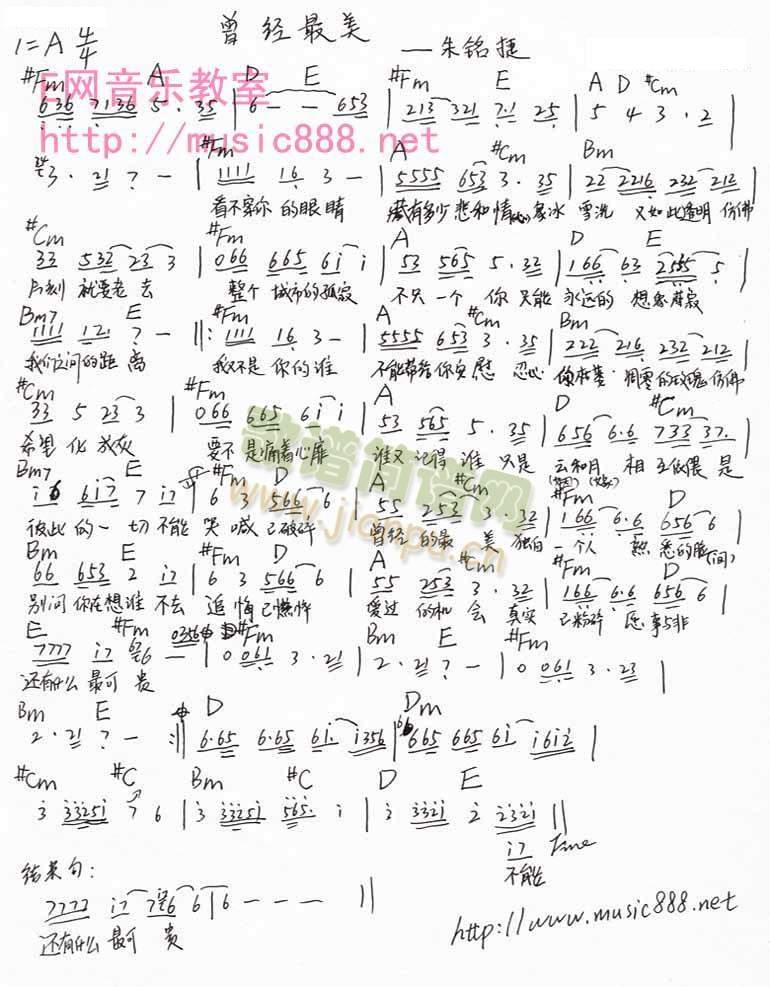 曾经最美
1=A 4/4 —朱铭捷
E网音乐教室
http://music888.net
#Fm A D E #Fm E A D #Cm
636 7136 5· 35 | 6 - - 653 | 213 321 7·1 25 | 5 4 3 · 2 |
#Fm A #Cm Bm
3· 21 7 - | 1111 16 3 - | 5555 653 3· 35 | 22 2216 232 212 |
看不穿你 的眼睛 藏有多少 悲和情 冰雪洗 又如此透明 仿佛
#Cm #Fm A D E
33 532 23 3 | 066 665 6i i | 53 565 5· 32 | 166 63 2555 5 |
片刻 就要老去 整个 城市的孤寂 不只一个 你 只能 永远的 想象
Bm7 E #Fm A #Cm Bm
1111 121 7 - ‖: 1111 16 3 - | 5555 653 3· 35 | 222 216 232 212 |
我们之间的距离 我又不是 你的谁 不能带给你安慰 忍心 凋零的玫瑰 仿佛
#Cm #Fm A D #Cm
33 5 23 3 | 066 665 6i i | 53 565 5· 35 | 656 6·6 733 37· |
希望 化成灰 要不 是痛着心扉 谁又记得谁 只是 云和月 相互依偎 是
Bm7 E #Fm D A #Cm #Fm D
i6 6i7 7 i7 | 6 3 566 6 | 55 253 3· 32 | 166 6·6 656 6 |
彼此 的一 切不能 哭喊 已破碎 曾经 的最 美 独自 一个人 熟悉的脸 (间)
Bm E #Fm D A #Cm #Fm D
66 653 2 i7 | 6 3 566 6 | 55 253 3· 32 | 166 6·6 656 6 |
别问 你在想谁 不去 追悔 已憔悴 爱过 的机会 真实 已粉碎 愿 事与非
E #Fm #Fm Bm E #Fm
7777 i7 6 - | 0 061 3· 21 | 2· 21 7 - | 0 061 3· 23 |
还有什么 最可贵
Bm E D Dm
2· 21 7 - :‖ 6·65 6·65 6i· i356 | 665 665 6i i6i2 |
#Cm #C Bm #C D E
3 33251 7 6 | 3 33251 565· i | 2 3321 2 2321 ‖
i7 Fine
不能
结束句:
7777 i7 766 | 6 - - - ‖
还有什么 最可 贵
http://www.music888.net
歌谱简谱网
www.jianpu.cn